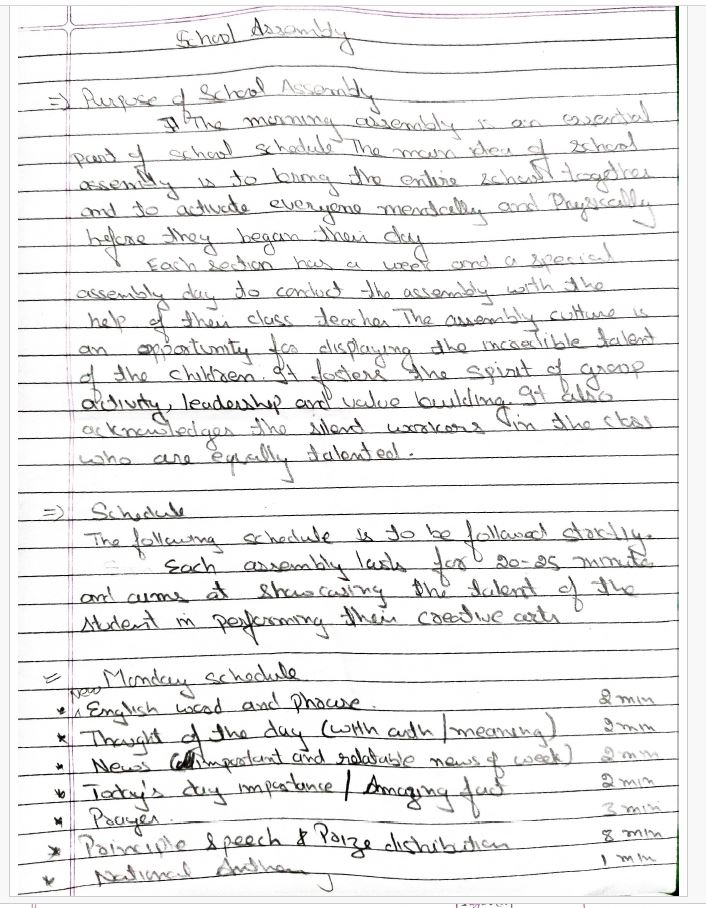 School Assembly
=> Purpose of School Assembly
The morning assembly is an essential
part of school schedule The main idea of school
assembly is to bring the entire school together
and to activate everyone mentally and Physically
before they began their day
Each section has a week and a special
assembly day to conduct the assembly with the
help of their class teacher The assembly culture is
an opportunity for displaying the incredible talent
of the children. It fosters the spirit of group
activity, leadership and value building. It also
acknowledges the silent workers in the class
who are equally talented.
=> Schedule
The following schedule is to be followed strictly.
Each assembly lasts for 20-25 minute
and aims at showcasing the talent of the
student in performing their creative arts
= Monday schedule
* New English word and Phrase. 2 min
* Thought of the day (with auth/meaning) 2 min
* News (important and relatable news of week) 2 min
* Today's day importance / Amazing fact 2 min
* Prayer. 3 min
* Principle speech & Prize distribution 8 min
* National Anthem 1 min